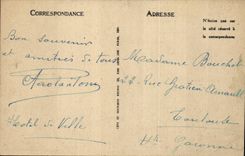 CORRESPONDANCE
Bon souvenir
et amitiés de tous
Hotel de Ville
ADRESSE
N'écrire pas sur
le côté réservé à
la correspondance
Madame Bouchet
27 Rue Gratien Arnault
Toulouse
Hte Garonne